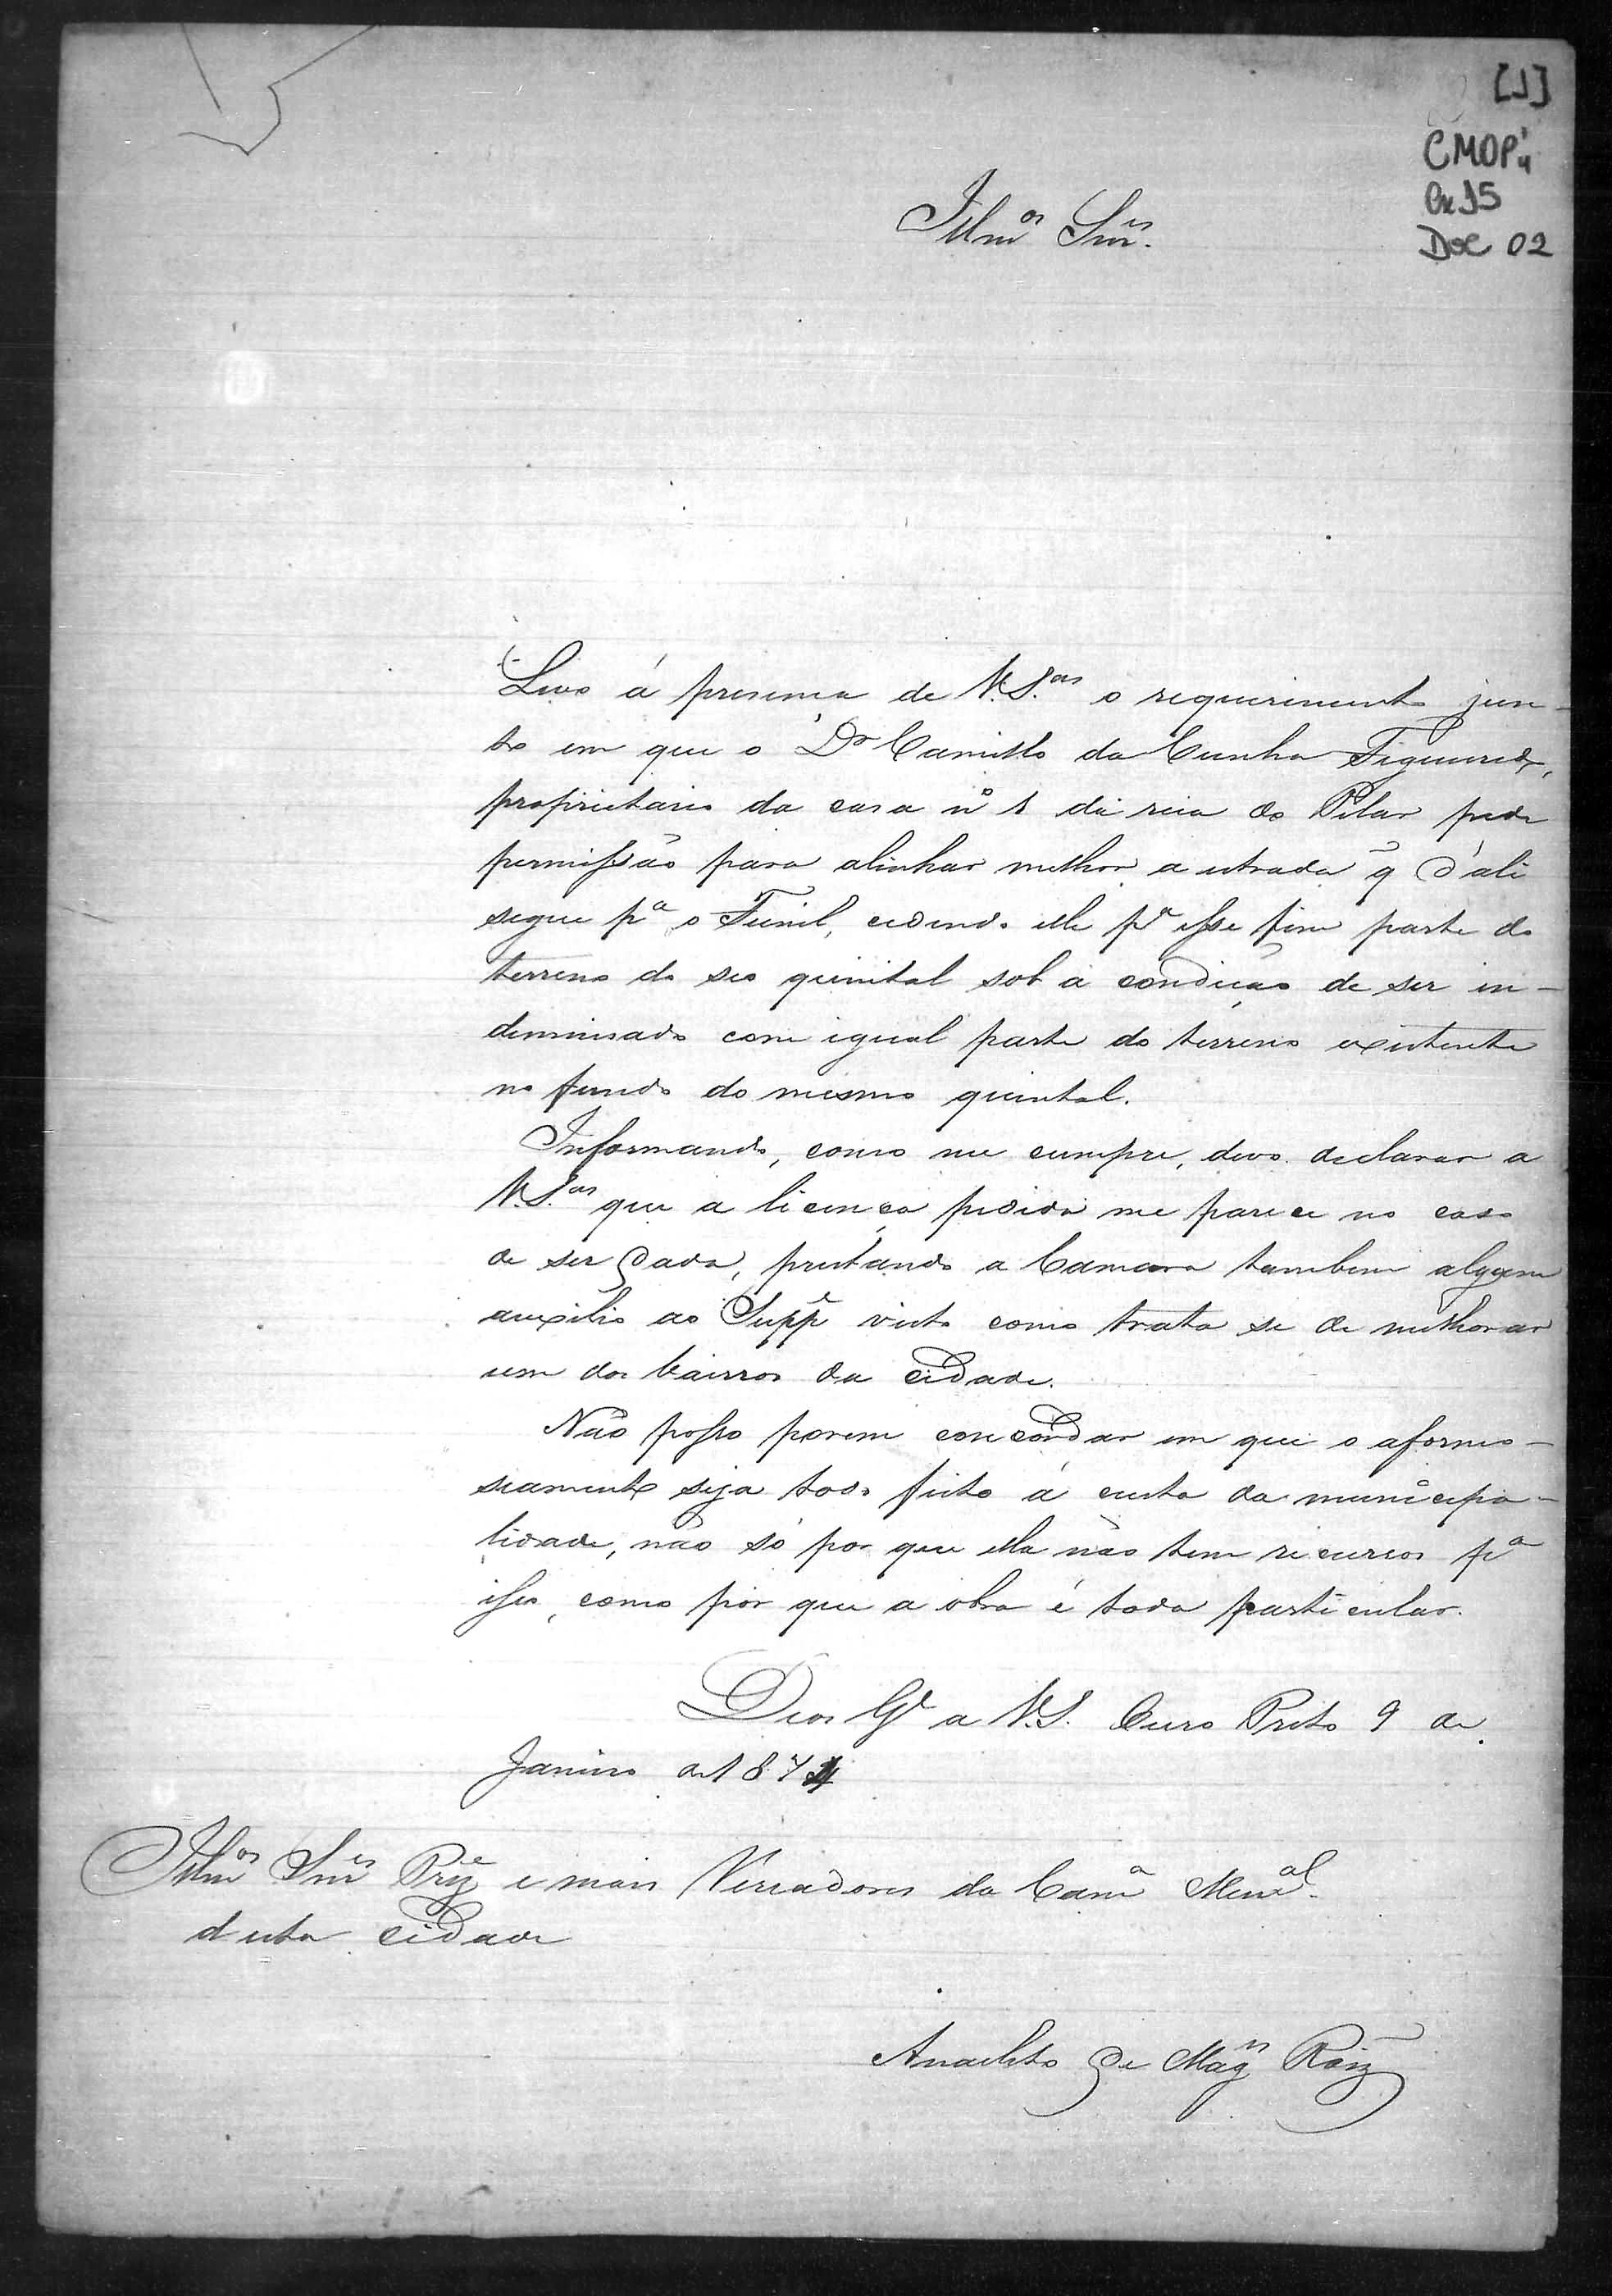 [1]
CMOP
Cx 15
Doc 02
Illmos Snres.
Levo á presença de V.S.as o requerimento jun-
to em que o Dr Camillo da Cunha Figueiredo,
proprietario da casa nº 1 da rua do Pilar pede
permissão para alinhar melhor a estrada q̃ d'ali
segue pa o Funil, cedendo elle pa esse fim parte do
terreno do seo quintal sob a condição de ser in-
demnisado com igual parte do terreno existente
no fundo do mesmo quintal.
Informando, como me cumpre, devo declarar a
V.S.as que a licença pedida me parece no caso
de ser dada, prestando a Camara tambem algum
auxilio ao Suppe visto como trata se de melhorar
um dos bairros da cidade.
Não posso porem concordar em que o aformo-
seamento seja todo feito á custa da municipa-
lidade, não só por que ella não tem recursos pa
isso, como por que a obra é toda particular.
Deos Ge a V.S. Ouro Preto 9 de
Janeiro de 1874
Illmos Snres Prze e mais Vereadores da Cama Munal.
desta cidade
Anacleto de Mages Roiz